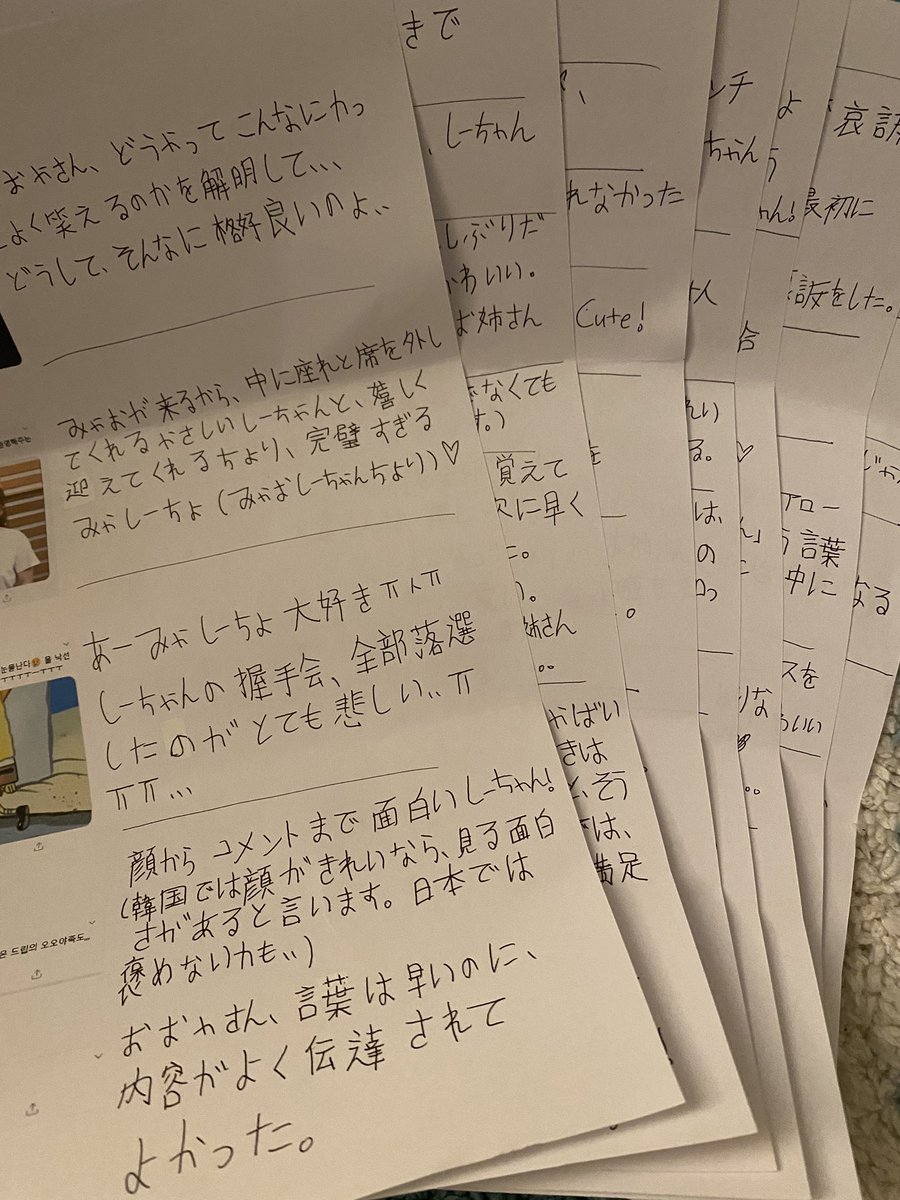 おおやさん、どうやって こんなにカっ
こよく笑えるのかを解明して、、、
どうして、そんなに格好良いのよ、、
みゃおが来るから、中に座れと席を外し
てくれるやさしいしーちゃんと、嬉しく
迎えてくれるちより、完璧すぎる
みゃしーちょ(みゃおしーちゃんちより))♡
あーみゃしーちょ 大好きㅠㅅㅠ
しーちゃんの握手会、全部落選
したのがとても悲しい、、ㅠ
ㅠㅠ...
顔からコメントまで面白いしーちゃん!
(韓国では顔がきれいなら、見る面白
さがあると言います。日本では
褒めないかも、、)
おおやさん、言葉は早いのに、
内容がよく伝達されて
よかった。
눈물난다 올 낙선
ㅜㅜㅜㅜㅡㅜㅜㅜ
은 드립의 오오야족도...
きで
、しーちゃん
しぶりだ
かわいい。
お姉さん
なくても
す。)
覚えて
に早く
た。
)。
姉さん
。。
やばい
きは
、そう
では、
満足
、
れなかった
Cute!
を
。
ンチ
ちゃん
人
れい
る。
は、
の
よ
う
ん!
合
♡
ん」
に
りな
。。
哀訴
最初に
哀訴をした。
イロー
う言葉
中に
スを
わいい
じゃ
なる